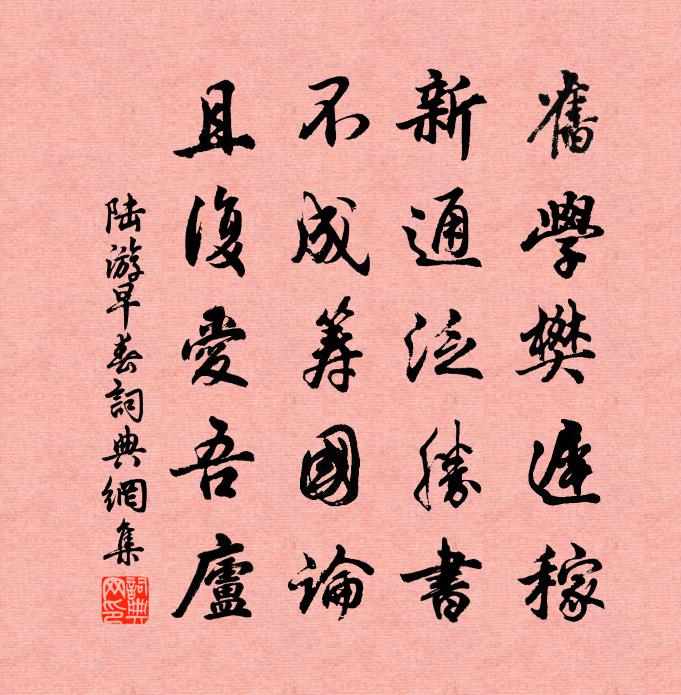 舊學樊遲稼
新通泛勝書
不成筹國論
且復愛吾廬
陆游早春詞典網集
詞典網印